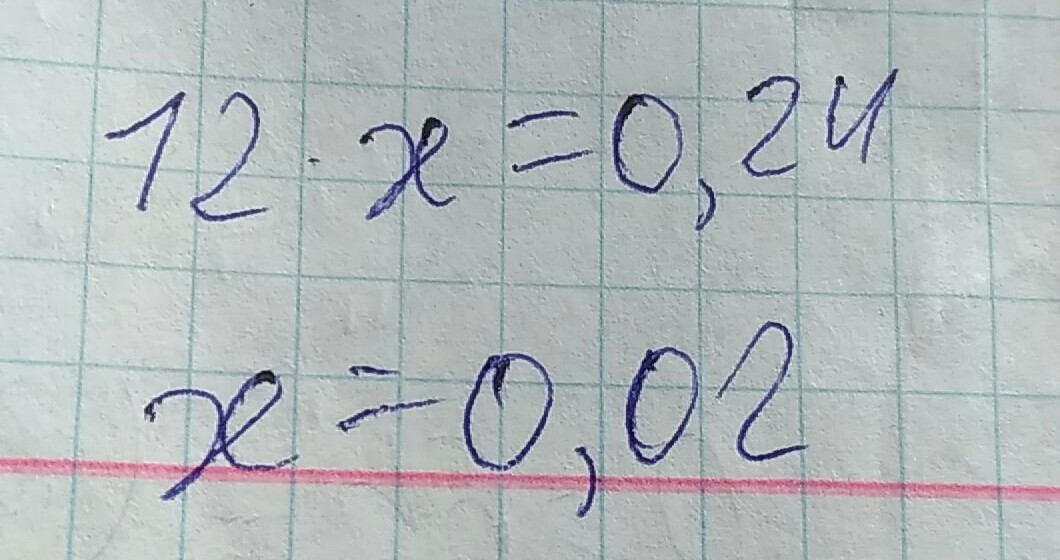 12 · x = 0,24
x = 0,02